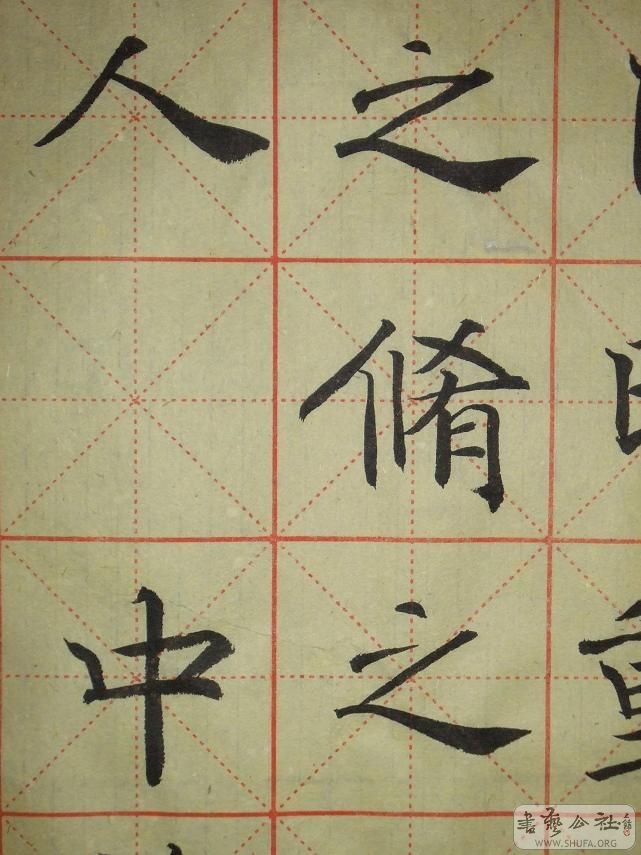 之倄之
人 中
書藝公社
WWW.SHUFA.ORG